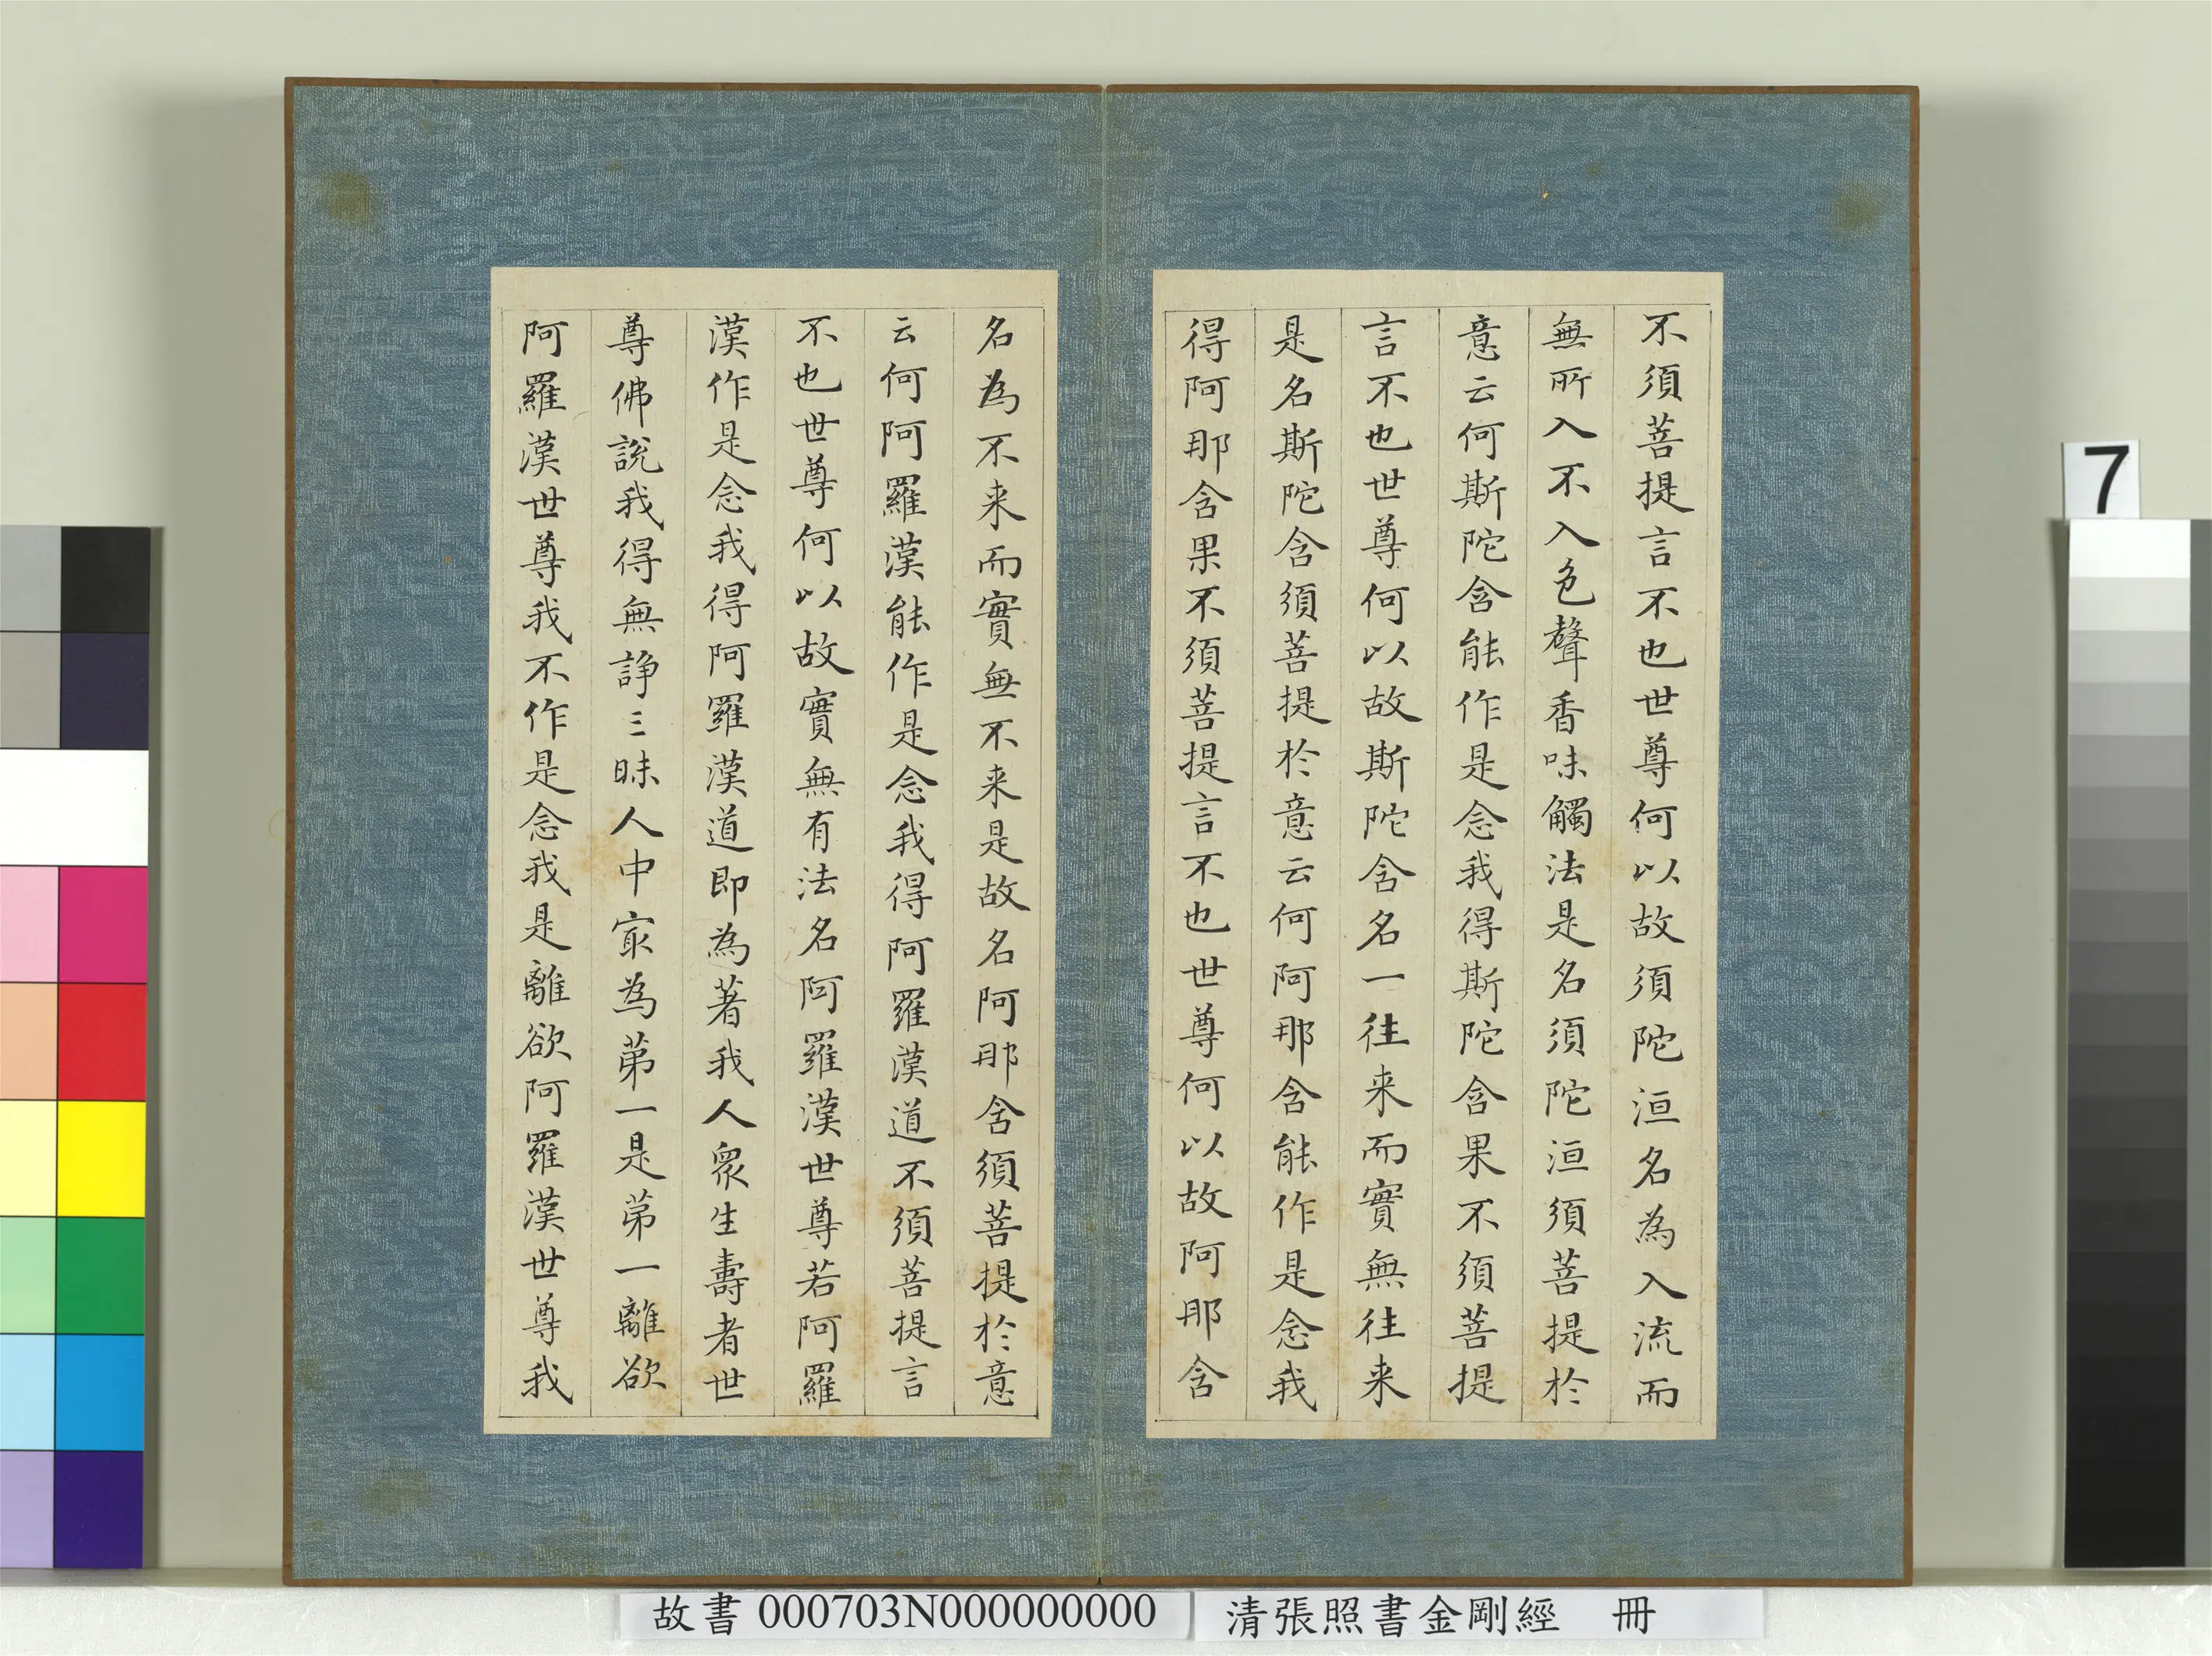 不須菩提言不也世尊何以故須陀洹名為入流而
無所入不入色聲香味觸法是名須陀洹須菩提於
意云何斯陀含能作是念我得斯陀含果不須菩提
言不也世尊何以故斯陀含名一往来而實無往来
是名斯陀含須菩提於意云何阿那含能作是念我
得阿那含果不須菩提言不也世尊何以故阿那含
名為不来而實無不来是故名阿那含須菩提於意
云何阿羅漢能作是念我得阿羅漢道不須菩提言
不也世尊何以故實無有法名阿羅漢世尊若阿羅
漢作是念我得阿羅漢道即為著我人眾生壽者世
尊佛說我得無諍三昧人中冣為苐一是苐一離欲
阿羅漢世尊我不作是念我是離欲阿羅漢世尊我
7
故書 000703N000000000
清張照書金剛經 冊